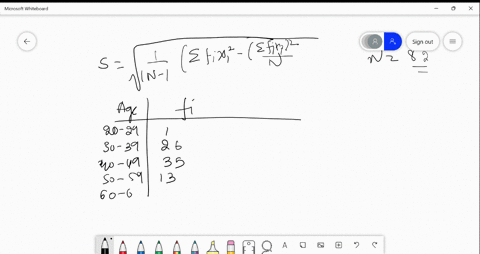 Microsoft Whiteboard
Sign out
S = √ 1/(N-1) (Σ fi xi² - (Σ fi xi)²/N
N = 82
Age fi
20-29 1
30-39 26
40-49 35
50-59 13
60-6